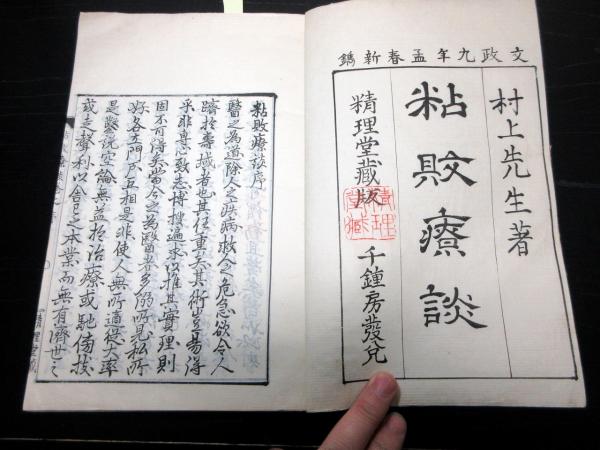 文政九年孟春新鐫
村上先生著
粘敗療談
精理堂藏版
精理堂藏
千鍾房發兌
粘敗療談序
醫之為道除人之疾病救人之危急欲令人
躋於壽域者也其任重矣其術豈易得
乎非專致志博搜遍求以推其實理則
固不可得矣當今之為醫者多溺所見私所
好各立門戶互相是非使人無所適從大率
是鑿說空論無益於治療或馳傍技
或走聲利以舍己之本業而無有濟世之
精理堂藏